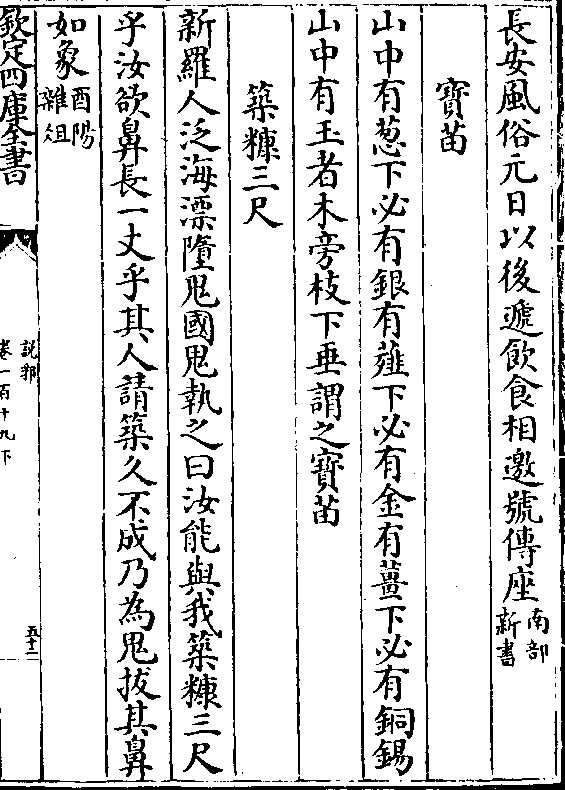 長安風俗元日以後遞飲食相邀號傳座南部新書
寳苗
山中有葱下必有銀有薤下必有金有薑下必有銅錫
山中有玉者木旁枝下垂謂之寳苗
築糠三尺
新羅人泛海漂墮鬼國鬼執之曰汝能與我築糠三尺
乎汝欲鼻長一丈乎其人請築久不成乃為鬼拔其鼻
如象酉陽雜俎
欽定四庫全書
説郛
卷一百十九下
五十二